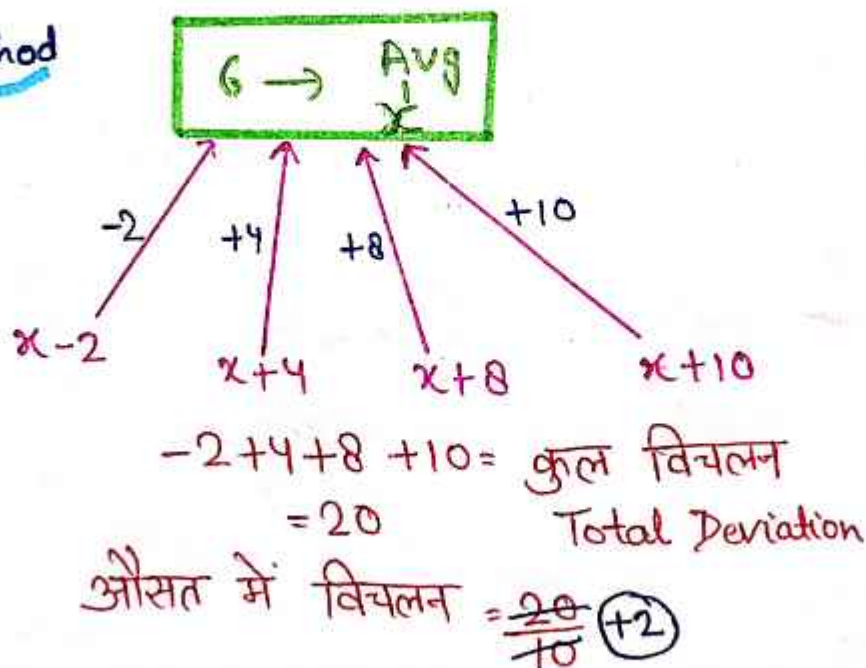 hod
6 → Avg
x
-2 +4 +8 +10
x-2 x+4 x+8 x+10
-2+4+8+10= कुल विचलन
=20 Total Deviation
औसत में विचलन = 20/10 +2